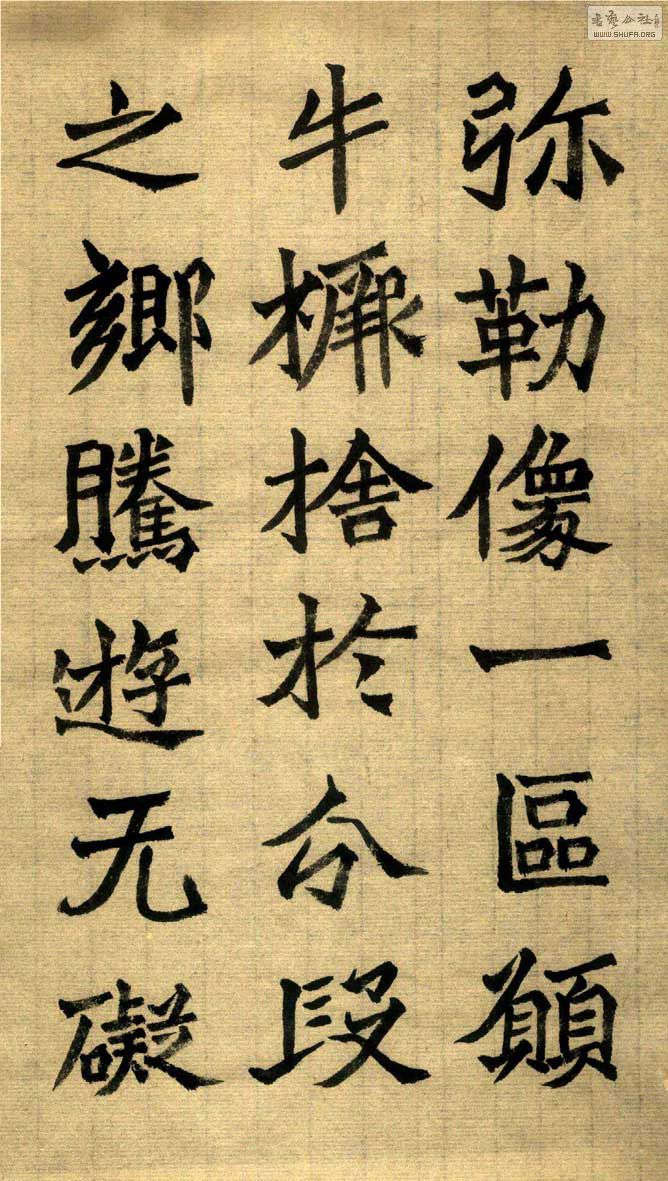 弥勒像一區願
牛橛捨於分段
之鄉騰遊无礙
書藝公社
WWW.SHUFA.ORG